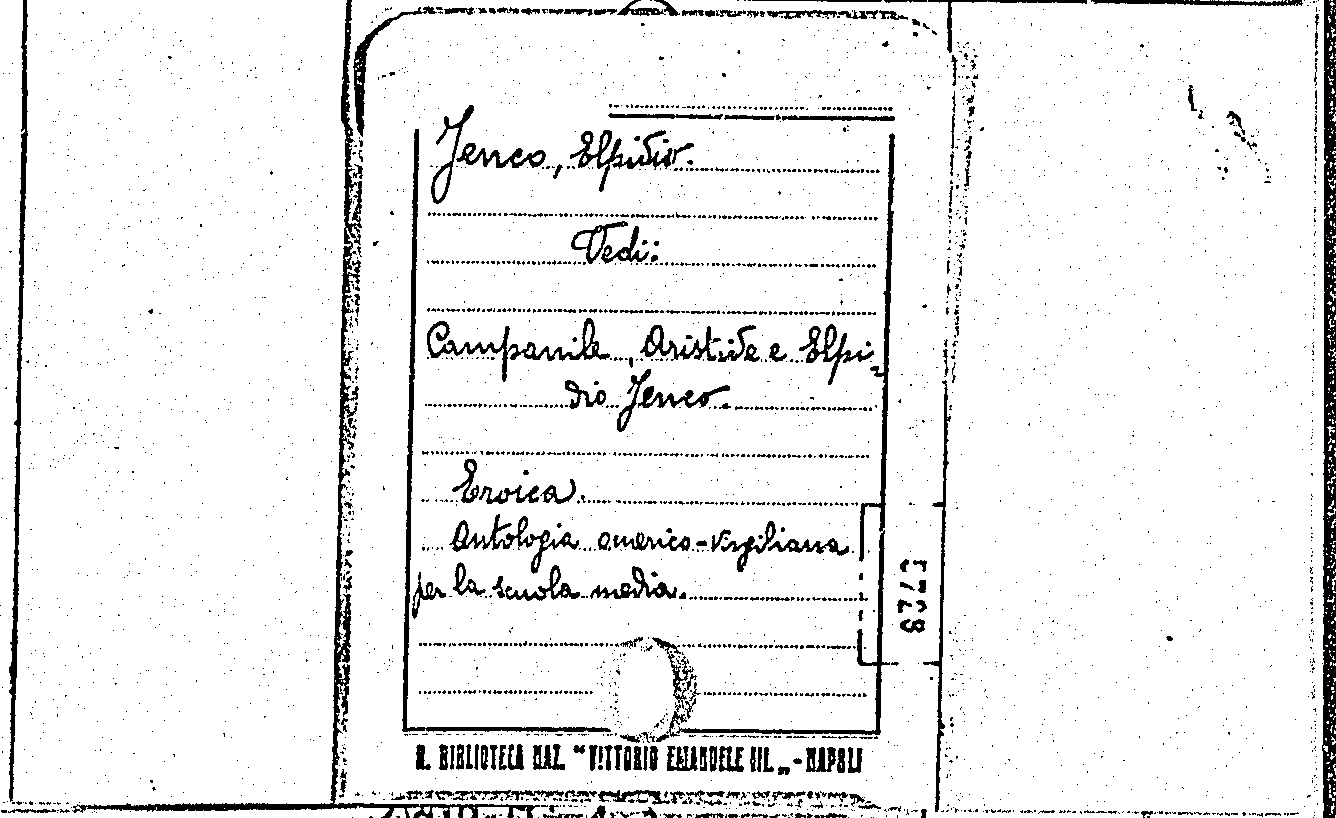 Jenco, Elpidio.
Vedi:
Campanile, Aristide e Elpi-
dio Jenco.
Eroica.
Antologia omerico-virgiliana
per la scuola media.
R. BIBLIOTECA NAZ. "VITTORIO EMANUELE III„ - NAPOLI